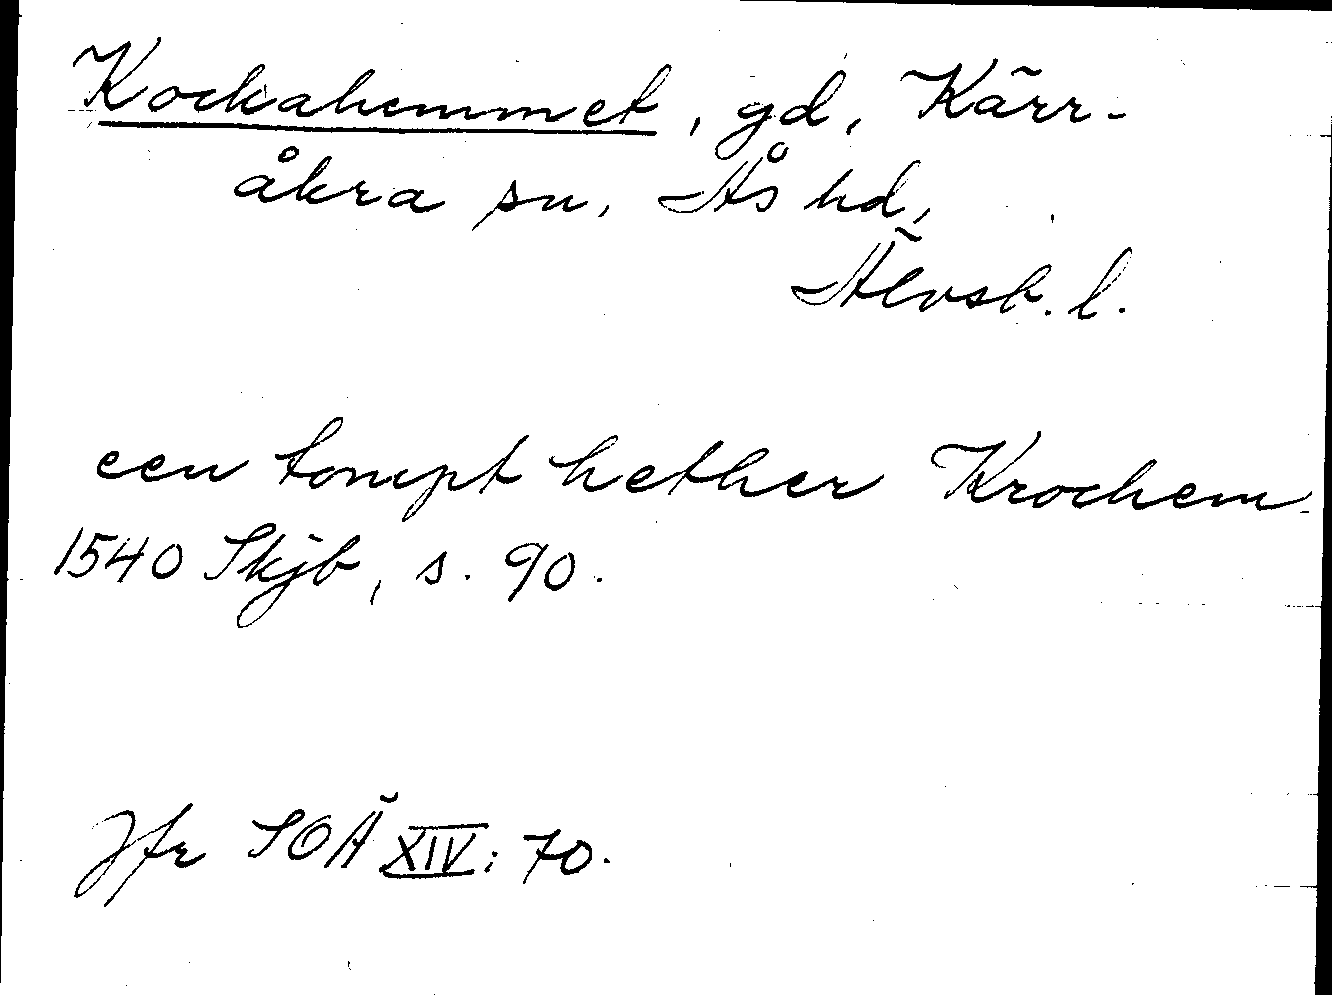 Kockahemmet, gd, Kärr-
åkra sn, Ås hd,
Älvsb. l.
een tompt hether Krochem
1540 Skjb, s. 90.
Jfr SOÄ XIV: 70.